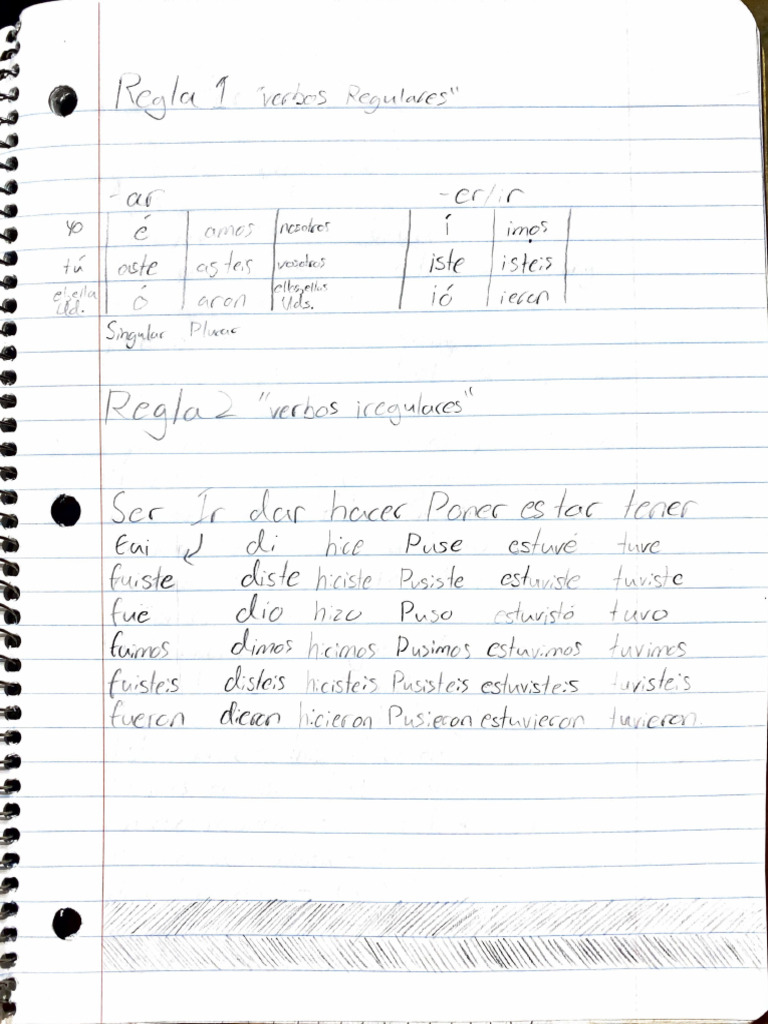 Regla 1 "verbos Regulares"
-ar -er/ir
yo é amos nosotros í imos
tú aste asteis vosotros iste isteis
el,ella Ud. ó aron ellos,ellas Uds. ió ieron
Singular Plurar
Regla 2 "verbos iregulares"
Ser Ir dar hacer Poner estar tener
Fui di hice Puse estuvé tuve
fuiste diste hiciste Pusiste estuviste tuviste
fue dio hizo Puso estuvistó tuvo
fuimos dimos hicimos Pusimos estuvimos tuvimos
fuisteis disteis hicisteis Pusisteis estuvisteis tuvisteis
fueron dieron hicieron Pusieron estuvieron tuvieron